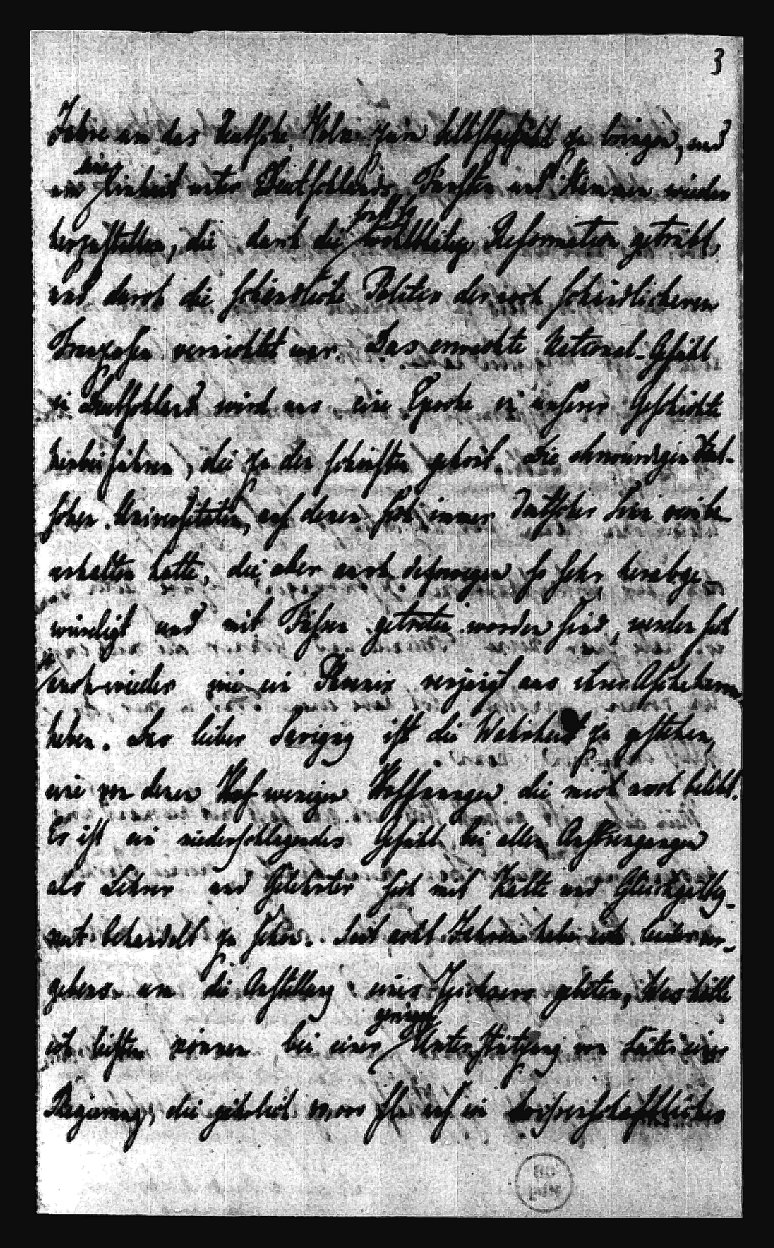 3
Jahre um das deutsche Volk zum Selbstgefühl zu bringen, und
um die Einheit unter Deutschlands Fürsten und Stämmen wieder
herzustellen, die durch die sonst so wohlthätige Reformation getrübt,
und durch die schändliche Politik der noch schändlicheren
Franzosen vernichtet war. Das erweckte National-Gefühl
in Deutschland wird uns eine Epoche in unserer Geschichte
herbeiführen, die zu den schönsten gehört. Die ehrwürdigen deut-
schen Universitäten, auf denen sich immer deutscher Sinn
erhalten hatte, die aber auch deßwegen so sehr herabge-
würdigt und mit Füßen getreten worden sind, werden sich
auch wieder wie ein Phoenix verjüngt aus ihrer Asche
heben. Das lieber Savigny ist die Wahrheit zu gestehen,
eine von denen wenigen Hoffnungen die mich noch belebt.
Es ist ein niederschlagendes Gefühl bei allen Anstrengungen
als Lehrer und Gelehrter sich mit Kälte und Gleichgültig-
keit behandelt zu sehen. Seit acht Jahren habe ich leider ver-
gebens um die Anstellung eines gebeten, Was hätte
ich leisten können bei einer geringen Unterstützung von Seiten einer
Regierung, die jährlich auf ein wissenschaftliches